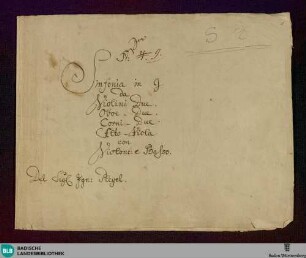 Sinfonia in G
da
Violini Due
Oboe - Due
Corni - Due
Alto - Viola
con
Violone e Basso
Del Sigl: Pleyel.
BLB
BADISCHE
LANDESBIBLIOTHEK
Baden-Württemberg